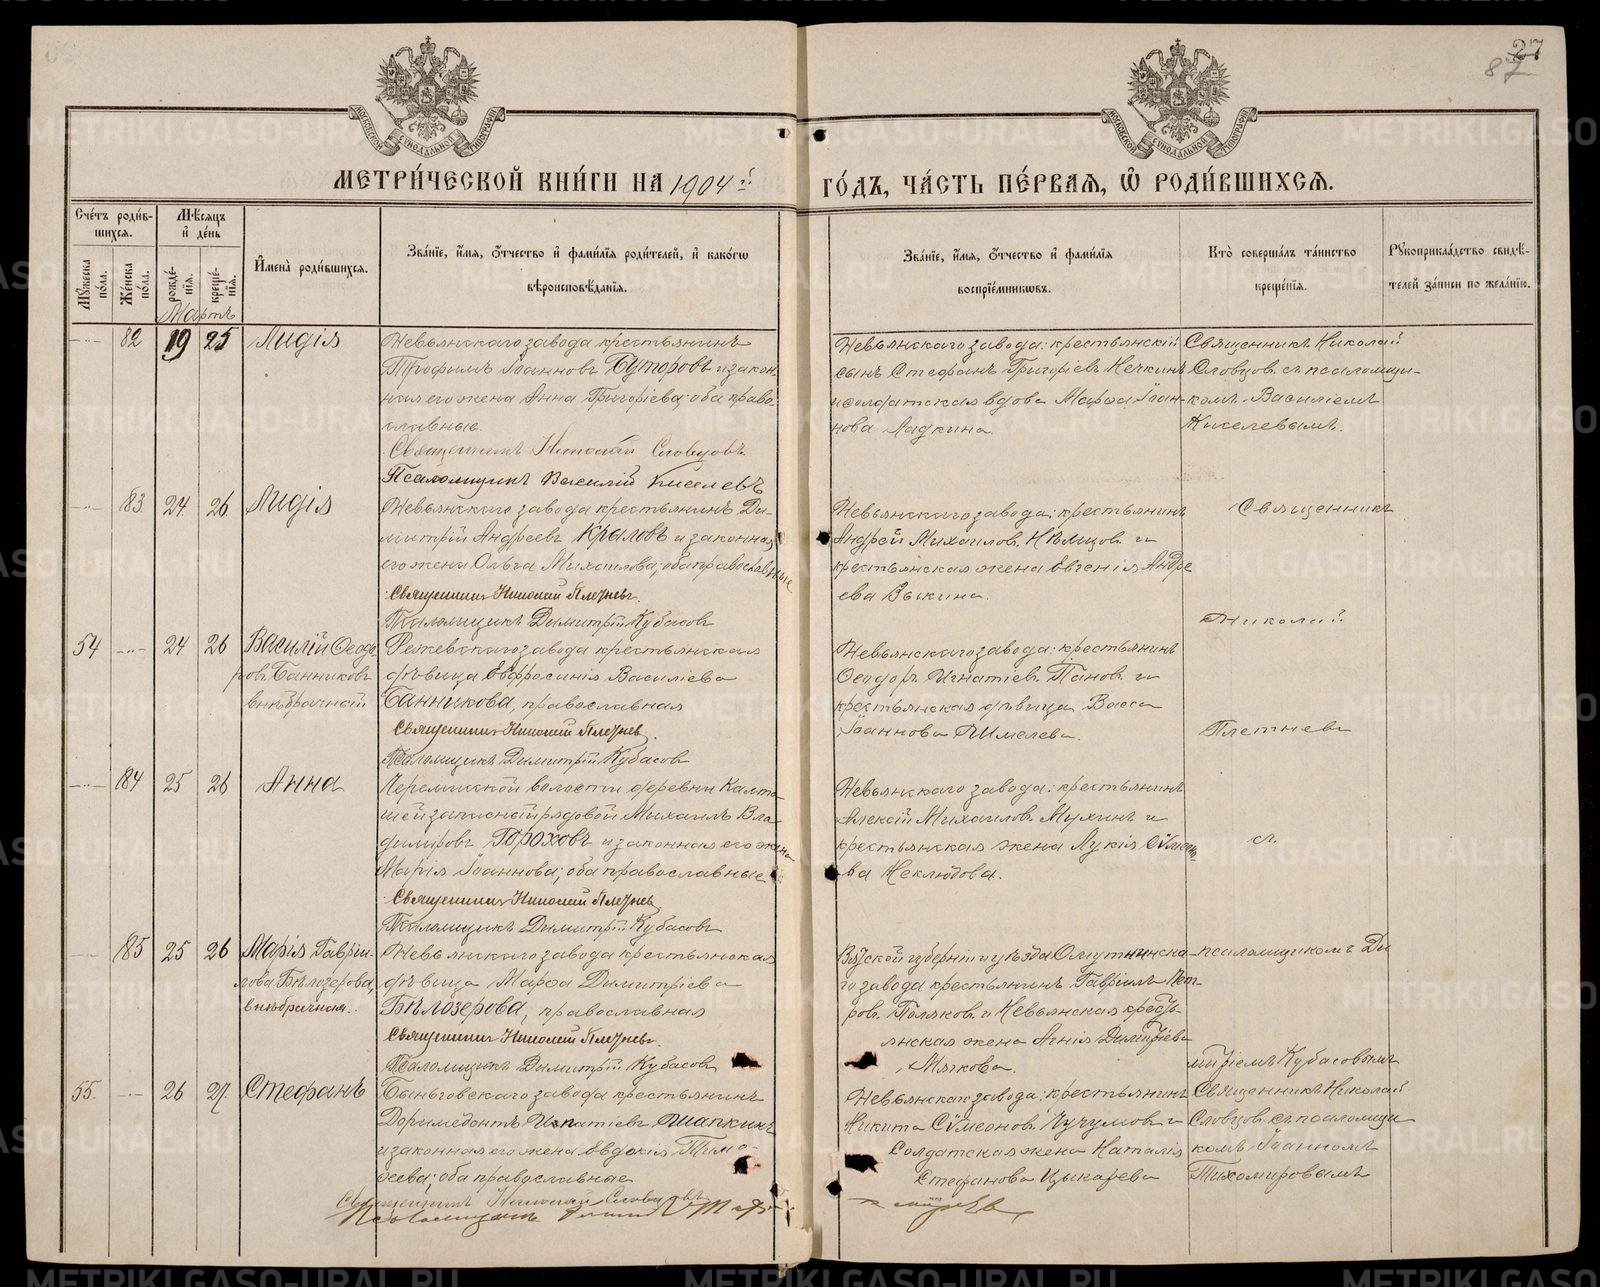 27
87
МОСКОВСКОЙ СѴНОДАЛЬНОЙ ТИПОГРАФІИ
МОСКОВСКОЙ СѴНОДАЛЬНОЙ ТИПОГРАФІИ
МЕТРИ́ЧЕСКОЙ КНИ́ГИ НА 1904й ГО́ДЪ, ЧА́СТЬ ПЕ́РВАЯ, Ѽ РОДИ́ВШИХСЯ.
Счётъ роди́вшихся.
Мꙋ́жеска по́ла.
Же́нска по́ла.
Мѣ́сяцъ и҆ де́нь
рожде́нїя.
креще́нїя.
И҆мена̀ роди́вшихся.
Зва́нїе, и҆́мя, ѻ҆́тчество и҆ фами́лїя роди́телей, и҆ како́гѡ
вѣроисповѣ́данїя.
Зва́нїе, и҆́мя, ѻ҆́тчество и҆ фами́лїя
воспрїе́мникѡвъ.
Кто̀ соверша́лъ та́инство
креще́нїя.
Рꙋкоприкла́дство свидѣ́-
телей за́писи по жела́нїю.
Мартъ
82 19 25 Лидія
Невьянскаго завода крестьянинъ
Трофимъ Іоанновъ Буторовъ и закон-
ная его жена Анна Григоріева; оба право-
славные.
Священникъ Николай Словцовъ
Псаломщикъ Василій Киселевъ
Невьянскаго завода: крестьянскій
сынъ Стефанъ Григоріев. Нечкинъ
и солдатская вдова Марфа Іоан-
нова Ладкина.
Священникъ Николай
Словцов. съ псаломщи-
комъ Василіемъ
Киселевымъ.
83 24 26 Лидія
Невьянскаго завода крестьянинъ Ди-
митрій Андреевъ Краловъ и законная
его жена Ольга Михаилова; оба православные
Священникъ Николай Плетневъ.
Псаломщикъ Димитрій Кубасовъ
Невьянскаго завода; крестьянинъ
Андрей Михаилов. Нѣмцов. и
крестьянская жена Евгенія Андре
ева Выкина.
Священникъ
Николай
54 24 26 Василій Ѳеодо
ров. Банниковъ
внѣбрачный
Режевскаго завода крестьянская
дѣвица Евфросинія Василіева
Банникова, православная
Священникъ Николай Плетневъ.
Псаломщикъ Димитрій Кубасовъ
Невьянскаго завода: крестьянинъ
Ѳеодоръ Игнатіев. Панов. и
крестьянская дѣвица Васса
Іоаннова Шмелева.
Плетневъ
184 25 26 Анна
волости деревни
запасный рядовой Михаилъ Вла-
димировъ Гороховъ и законная его жена
Марія Іоаннова; оба православные
Священникъ Николай Плетневъ
Псаломщикъ Димитрій Кубасовъ
Невьянскаго завода: крестьянинъ
Алексій Михаилов. Мухинъ и
крестьянская жена Лукія Сѵмео-
ва Неклюдова.
съ
185 25 26 Марія Гавріи-
лова Бѣлозерова,
внѣбрачная.
Невьянскаго завода крестьянская
дѣвица Марфа Димитріева
Бѣлозерова, православная
Священникъ Николай Плетневъ.
Псаломщикъ Димитрій Кубасовъ
Вятской губерніи и уѣзда Омутнинска-
го завода крестьянинъ Гавріилъ Пет-
ров. Поляков. и Невьянская кресть-
янская жена Агнія Димитріева
Мягкова.
псаломщикомъ Ди
митріемъ Кубасовымъ
55. 26 27. Стефанъ
Быньговскаго завода крестьянинъ
Доримедонтъ Ипатіевъ Шапкинъ
и законная его жена Евдокія Тимо-
ѳеева; оба православные
Священникъ Николай Словцовъ
Псаломщикъ
Невьянскаго завода; крестьянинъ
Никита Сѵмеонов. Чучумов. и
Солдатская жена Наталія
Стефанова Цыкарева
Священникъ Николай
Словцов. съ псаломщи
комъ Іоанномъ
Тихомировымъ
METRIKI.GASO-URAL.RU